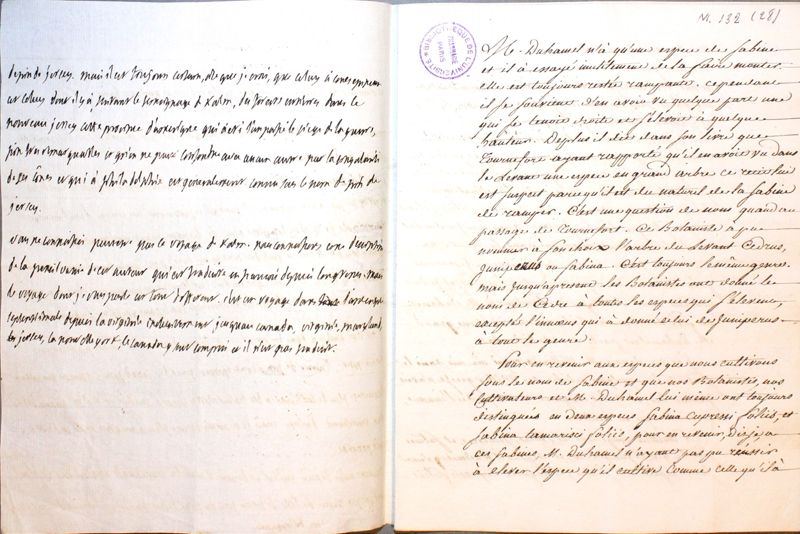 de jersey. mais il est toujours certain, et que je crois, que celuy à cones epineux
est celuy dont il y à suivant le temoignage de Kalm, des forests entieres dans le
nouveau jersey cette province d'amerique qui à eté le siege de la guerre,
pin tres remarquable et qu'on ne peut confondre avec aucun autre par la
de ses cônes et qui à philadelphie est generalement connu sous le nom de pin de
jersey.
vous ne connoissés peut etre pas le voyage de Kalm. nous connoissons une description
de la pensilvanie de cet auteur qui est traduite en françois depuis longtems. mais
le voyage dont je vous parle est tout different. c'est un voyage dans l'amerique
septentrionale depuis la virginie jusqu'au canada, virginie, maryland,
jersey, la nouvelle york, le canada y sont compris et il n'est pas traduit.
M. 132 (28)
BIBLIOTHEQUE DE L'UNIVERSITÉ
PARIS
M. Duhamel n'à qu'une espece de Sabine
et il à essayé inutilement de la faire monter.
elle est toujours restée rampante. cependant
il se souvient d'en avoir vu quelque part une
qui se tenoit droite et s'élevoit à quelque
hauteur. De plus il dit dans son livre que
Tournefort ayant rapporté qu'il en avoit vu dans
le Levant une espece en grand arbre ce recit lui
est suspect parcequ'il est du naturel de la Sabine
de ramper. C'est une question de nous quand au
passage de Tournefort. Ce Botaniste à pu
nommer à son choix l'arbre du Levant Cedrus,
Juniperus ou Sabina. C'est toujours le même genre.
mais jusqu'apresent les Botanistes ont donné le
nom de Cedre à toutes les especes qui s'élevent,
excepté l'une qui à donné celui de Juniperus
à tout le genre.
Pour en revenir aux especes que nous cultivons
sous le nom de Sabine et que nos Botanistes, nos
Cultivateurs et M. Duhamel lui même ont toujours
distinguées en deux especes Sabina cupressi foliis, et
Sabina tamarisci foliis, pour en revenir, disje, a
ces Sabines, M. Duhamel n'ayant pas pu réussir
à elever l'espece qu'il cultive comme celle qu'il à